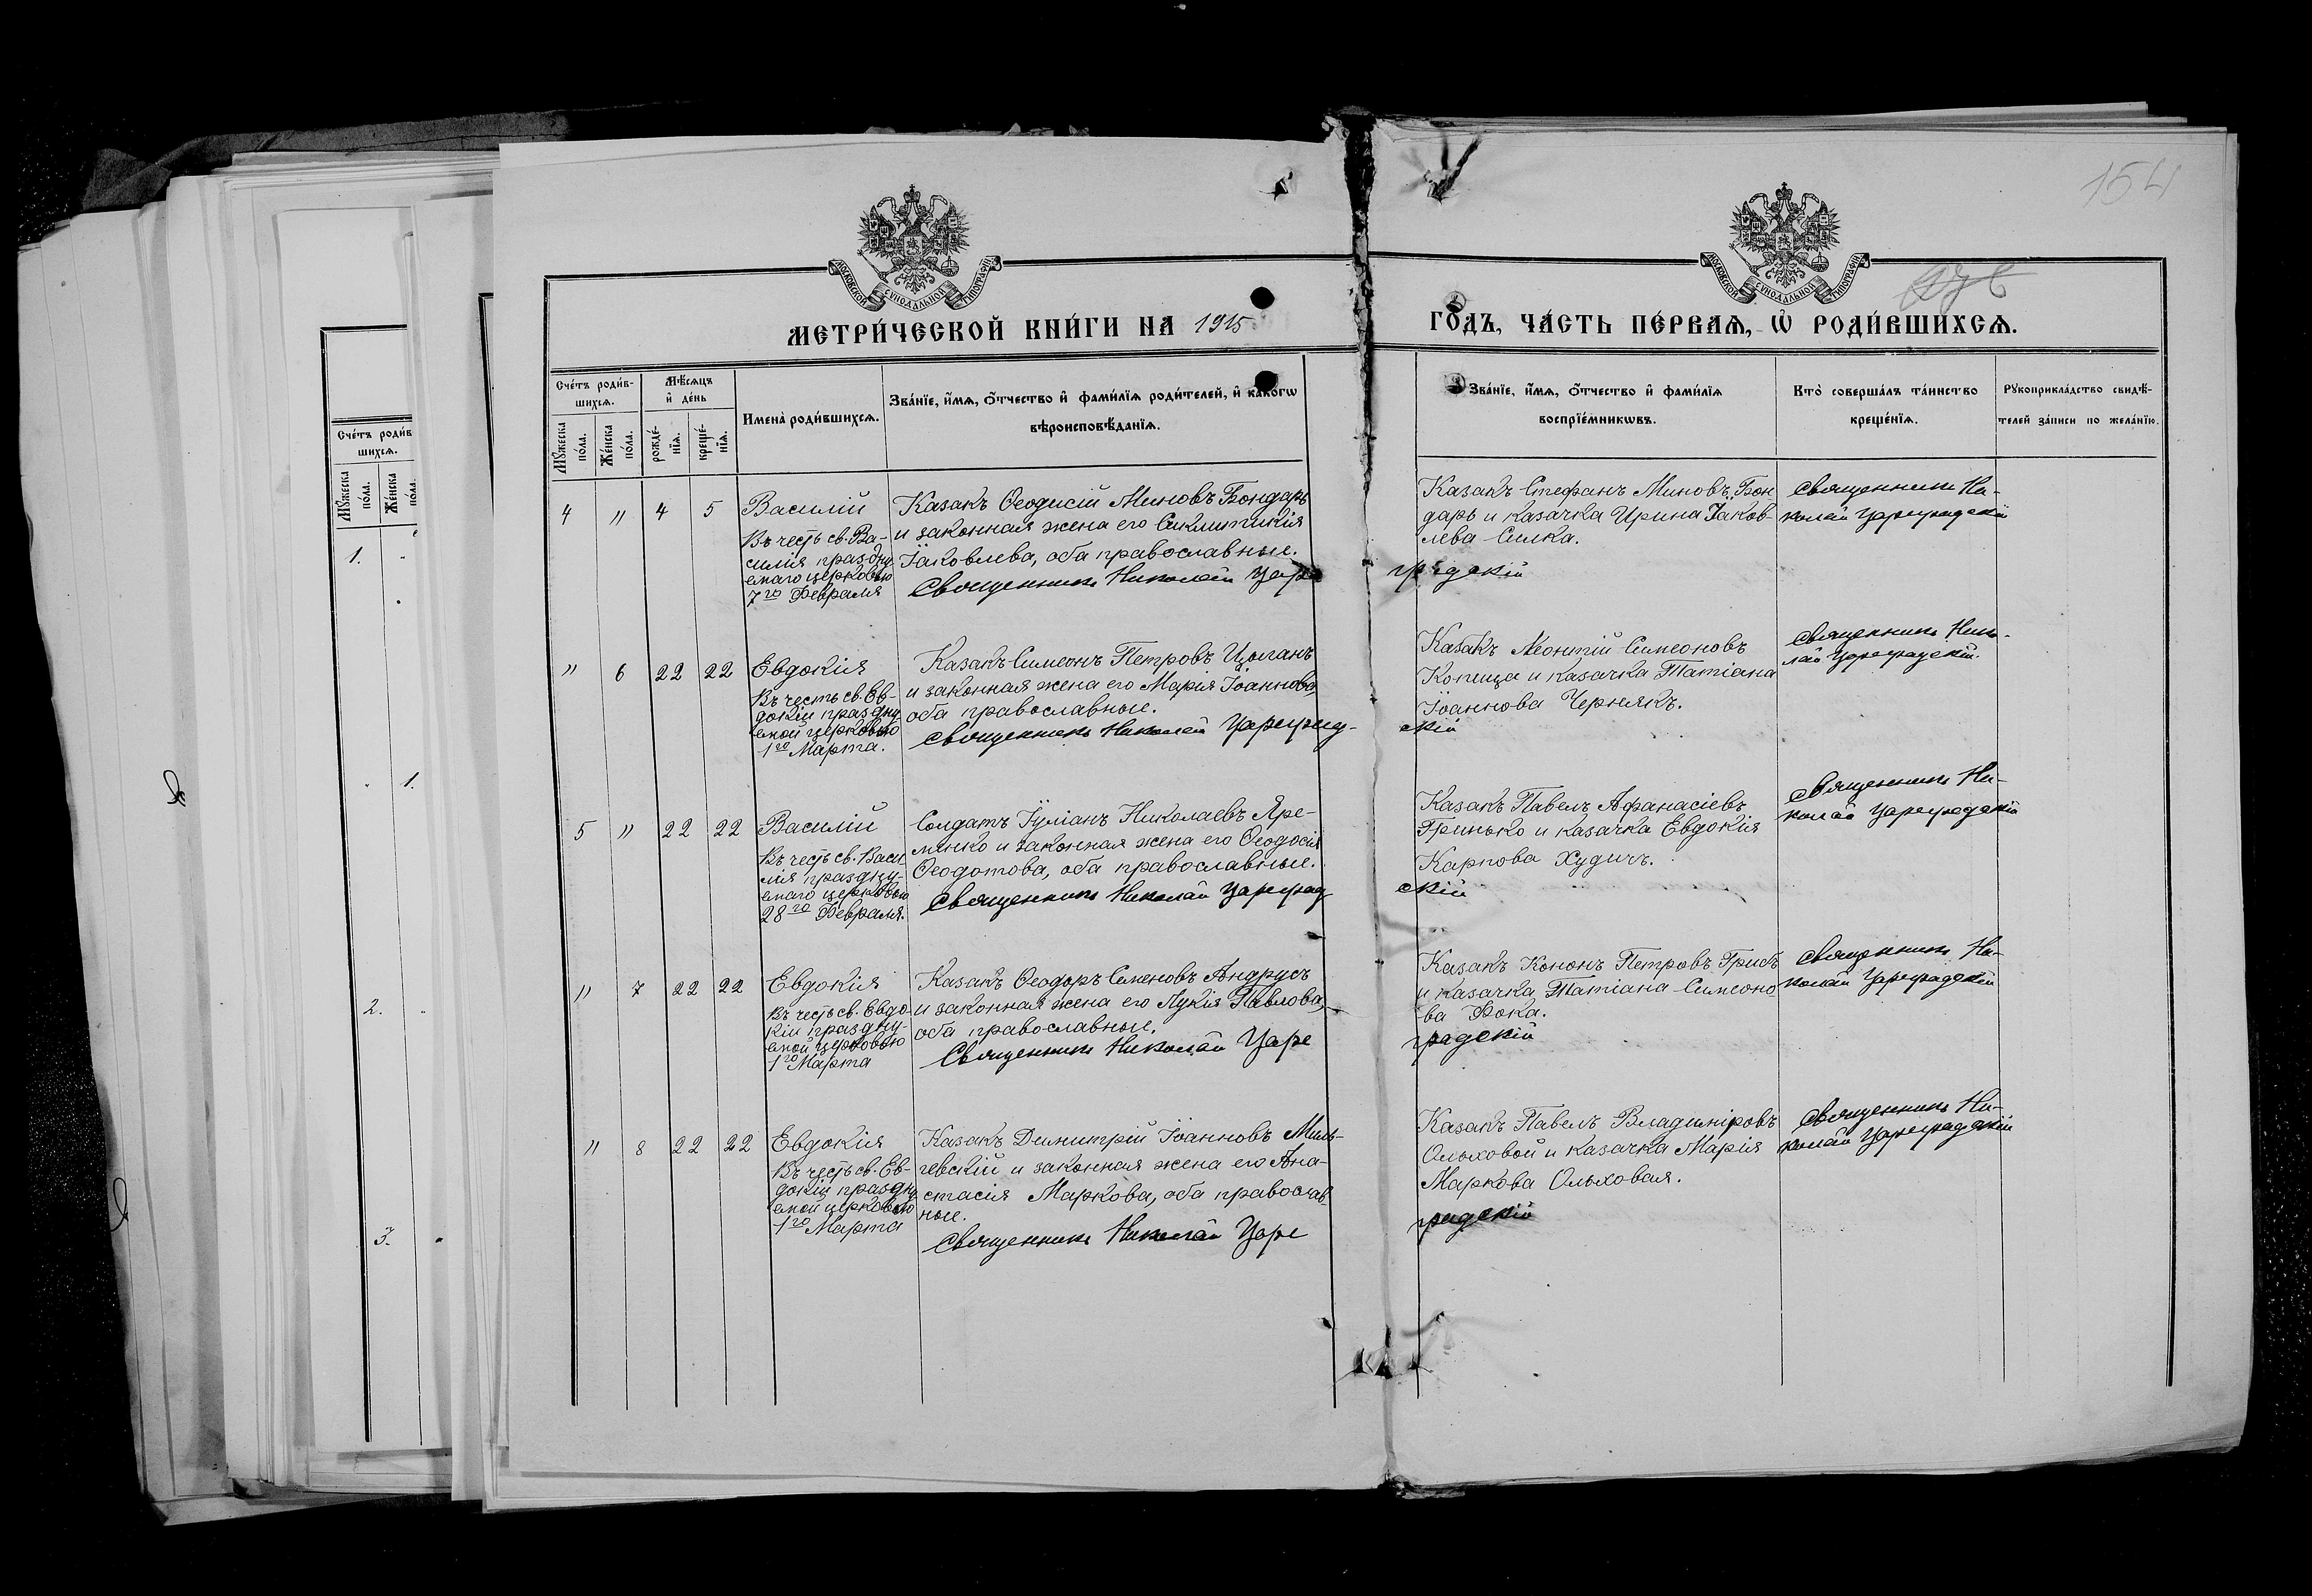 154
МОСКОВСКОЙ СѴНОДАЛЬНОЙ ТИПОГРАФІИ
МОСКОВСКОЙ СѴНОДАЛЬНОЙ ТИПОГРАФІИ
МЕТРИ́ЧЕСКОЙ КНИ́ГИ НА 1915
ГО́ДЪ, ЧА́СТЬ ПЕ́РВАѦ, Ѡ҆ РОДИ́ВШИХСѦ.
Сче́тъ роди́в-
шихсѧ.
Мꙋ́жеска по́ла.
Же́нска по́ла.
Мѣ́сѧцъ и҆ де́нь
рожде́-
нїѧ.
креще́-
нїѧ.
И҆мена̀ роди́вшихсѧ.
Зва́нїе, и҆́мѧ, ѻ҆́тчество и҆ фами́лїѧ роди́телей, и҆ како́гѡ
вѣроисповѣ́данїѧ.
Зва́нїе, и҆́мѧ, ѻ҆́тчество и҆ фами́лїѧ
воспрїе́мникѡвъ.
Кто̀ соверша́лъ та́инство
креще́нїѧ.
Рꙋкоприкла́дство свидѣ́-
телей за́писи по жела́нїю.
Сче́тъ роди́в
шихсѧ.
Мꙋ́жеска по́ла.
Же́нска по́ла.
1. "
" 1.
2. "
3. "
4 " 4 5 Василій
Въ честь св. Ва-
силія праздну
емаго церковью
7го Февраля
Казакъ Ѳеодисій Миновъ Бондарь
и законная жена его Сиклитикія
Іаковлева, оба православные.
Священникъ Николай Царе
градскій
Казакъ Стефанъ Миновъ Бон-
дарь и казачка Ирина Іаков-
лева Силка.
Священникъ Ни-
колай Цареградскій
" 6 22 22 Евдокія
Въ честь св. Ев-
докіи праздну
емой церковью
1го Марта.
Казакъ Симеонъ Петровъ Цыганъ
и законная жена его Марія Іоаннова,
оба православные.
Священникъ Николай Цареград-
скій
Казакъ Леонтій Симеоновъ
Копица и казачка Татіана
Іоаннова Чернякъ.
Священникъ Нико-
лай Цареградскій.
5 " 22 22 Василій
Въ честь св. Васи
лія праздну-
емаго церковью
28го Февраля.
Солдатъ Іуліанъ Николаевъ Яре-
минко и законная жена его Ѳеодосія
Ѳеодотова, оба православные.
Священникъ Николай Цареград
скій
Казакъ Павелъ Афанасіевъ
Гринько и казачка Евдокія
Карпова Худичъ.
Священникъ Ни-
колай Цареградскій
" 7 22 22 Евдокія
Въ честь св. Евдо-
кіи праздну-
емой церковью
1го Марта
Казакъ Ѳеодоръ Семеновъ Андрусъ
и законная жена его Лукія Павлова,
оба православные.
Священникъ Николай Царе
градскій
Казакъ Кононъ Петровъ Грибъ
и казачка Татіана Симеоно
ва Фока.
Священникъ Ни-
колай Цареградскій
" 8 22 22 Евдокія
Въ честь св. Ев-
докіи праздну
емой церковью
1го Марта
Казакъ Димитрій Іоанновъ Миль-
гевскій и законная жена его Ана-
стасія Маркова, оба православ
ные.
Священникъ Николай Царе
градскій
Казакъ Павелъ Владиміровъ
Ольховой и казачка Марія
Маркова Ольховая.
Священникъ Ни-
колай Цареградскій